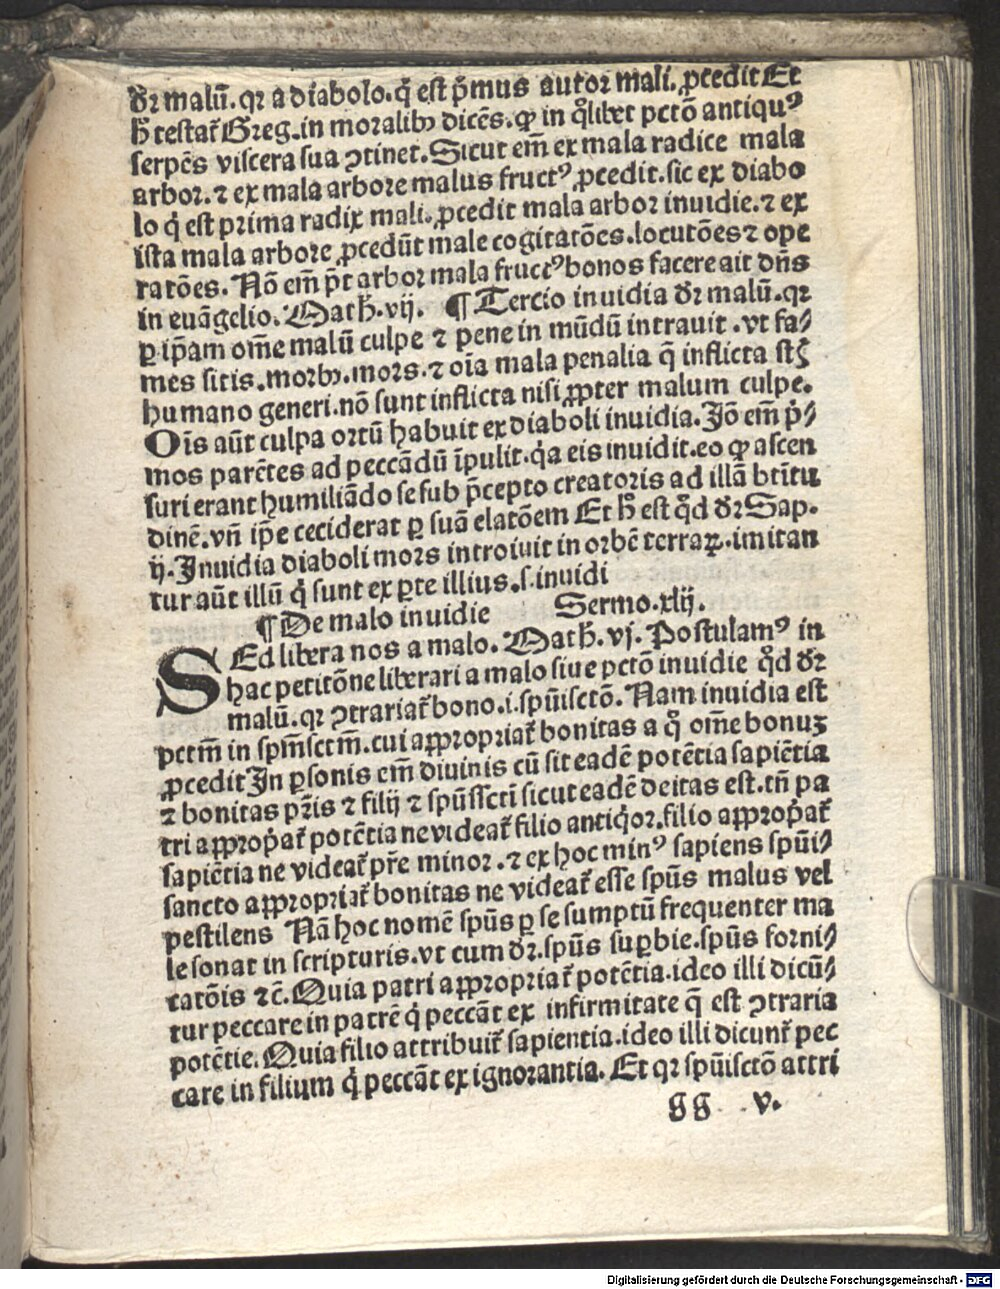 dr̄ malū. qꝛ a diabolo. q̇ est pͥmus autor mali. ꝓcedit Et
h̄ testat᷑ Greg. in moralibꝫ dicēs. ꝙ in qͦlibet pctō antiquꝰ
serpēs viscera sua ꝯtinet. Sicut em̄ ex mala radice mala
arbor. ⁊ ex mala arbore malus fructꝰ ꝓcedit. sic ex diabo
lo q̇ est prima radix mali. ꝓcedit mala arbor inuidie. ⁊ ex
ista mala arbore ꝓcedūt male cogitatōes. locutōes ⁊ ope
ratōes. Nō em̄ pt̄ arbor mala fructꝰ bonos facere ait dn̄s
in euāgelio. Math̄. vij. ¶ Tercio inuidia dr̄ malū. qꝛ
ꝑ ip̄am om̄e malū culpe ⁊ pene in mūdū intrauit. vt fa⸗
mes sitis. morbꝰ. mors. ⁊ oīa mala penalia q̄ inflicta st̄
humano generi. nō sunt inflicta nisi ꝓpter malum culpe.
Oīs aūt culpa ortū habuit ex diaboli inuidia. Iō em̄ pͥ⸗
mos parētes ad peccādū īpulit. qͥa eis inuidit. eo ꝙ ascen
suri erant humiliādo se sub p̄cepto creatoris ad illā btītu
dinē. vn̄ ip̄e ceciderat ꝑ suā elatōem Et h̄ est qd̄ dr̄ Sap.
ij. Inuidia diaboli mors introiuit in orbē terraꝝ. imitan
tur aūt illū q̇ sunt ex ꝑte illius. s. inuidi
¶ De malo inuidie Sermo. xlij.
SEd libera nos a malo. Math̄. vj. Postulamꝰ in
hac petitōne liberari a malo siue pctō inuidie qd̄ dr̄
malū. qꝛ ꝯtrariat᷑ bono. i. spūisctō. Nam inuidia est
pctm̄ in spm̄sctm̄. cui aꝓpriat᷑ bonitas a qͦ om̄e bonuꝫ
ꝓcedit In ꝑsonis em̄ diuinis cū sit eadē potētia sapiētia
⁊ bonitas pr̄is ⁊ filij ⁊ spūssctī sicut eadē deitas est. tn̄ pa
tri aꝓpͥat᷑ potētia ne videat᷑ filio antiqͥor. filio aꝓpͥat᷑
sapiētia ne videat᷑ pr̄e minor. ⁊ ex hoc minꝰ sapiens spūi⸗
sancto aꝓpriat᷑ bonitas ne videat᷑ esse spūs malus vel
pestilens Nā hoc nomē spūs ꝑ se sumptū frequenter ma
le sonat in scripturis. vt cum dr̄. spūs suꝑbie. spūs forni⸗
catōis ⁊c̄. Quia patri aꝓpriat᷑ potētia. ideo illi dicū⸗
tur peccare in patrē q̇ peccāt ex infirmitate q̄ est ꝯtraria
potētie. Quia filio attribuit᷑ sapientia. ideo illi dicunt᷑ pec
care in filium q̇ peccāt ex ignorantia. Et qꝛ spūisctō attri
gg v.
Digitalisierung gefördert durch die Deutsche Forschungsgemeinschaft - DFG